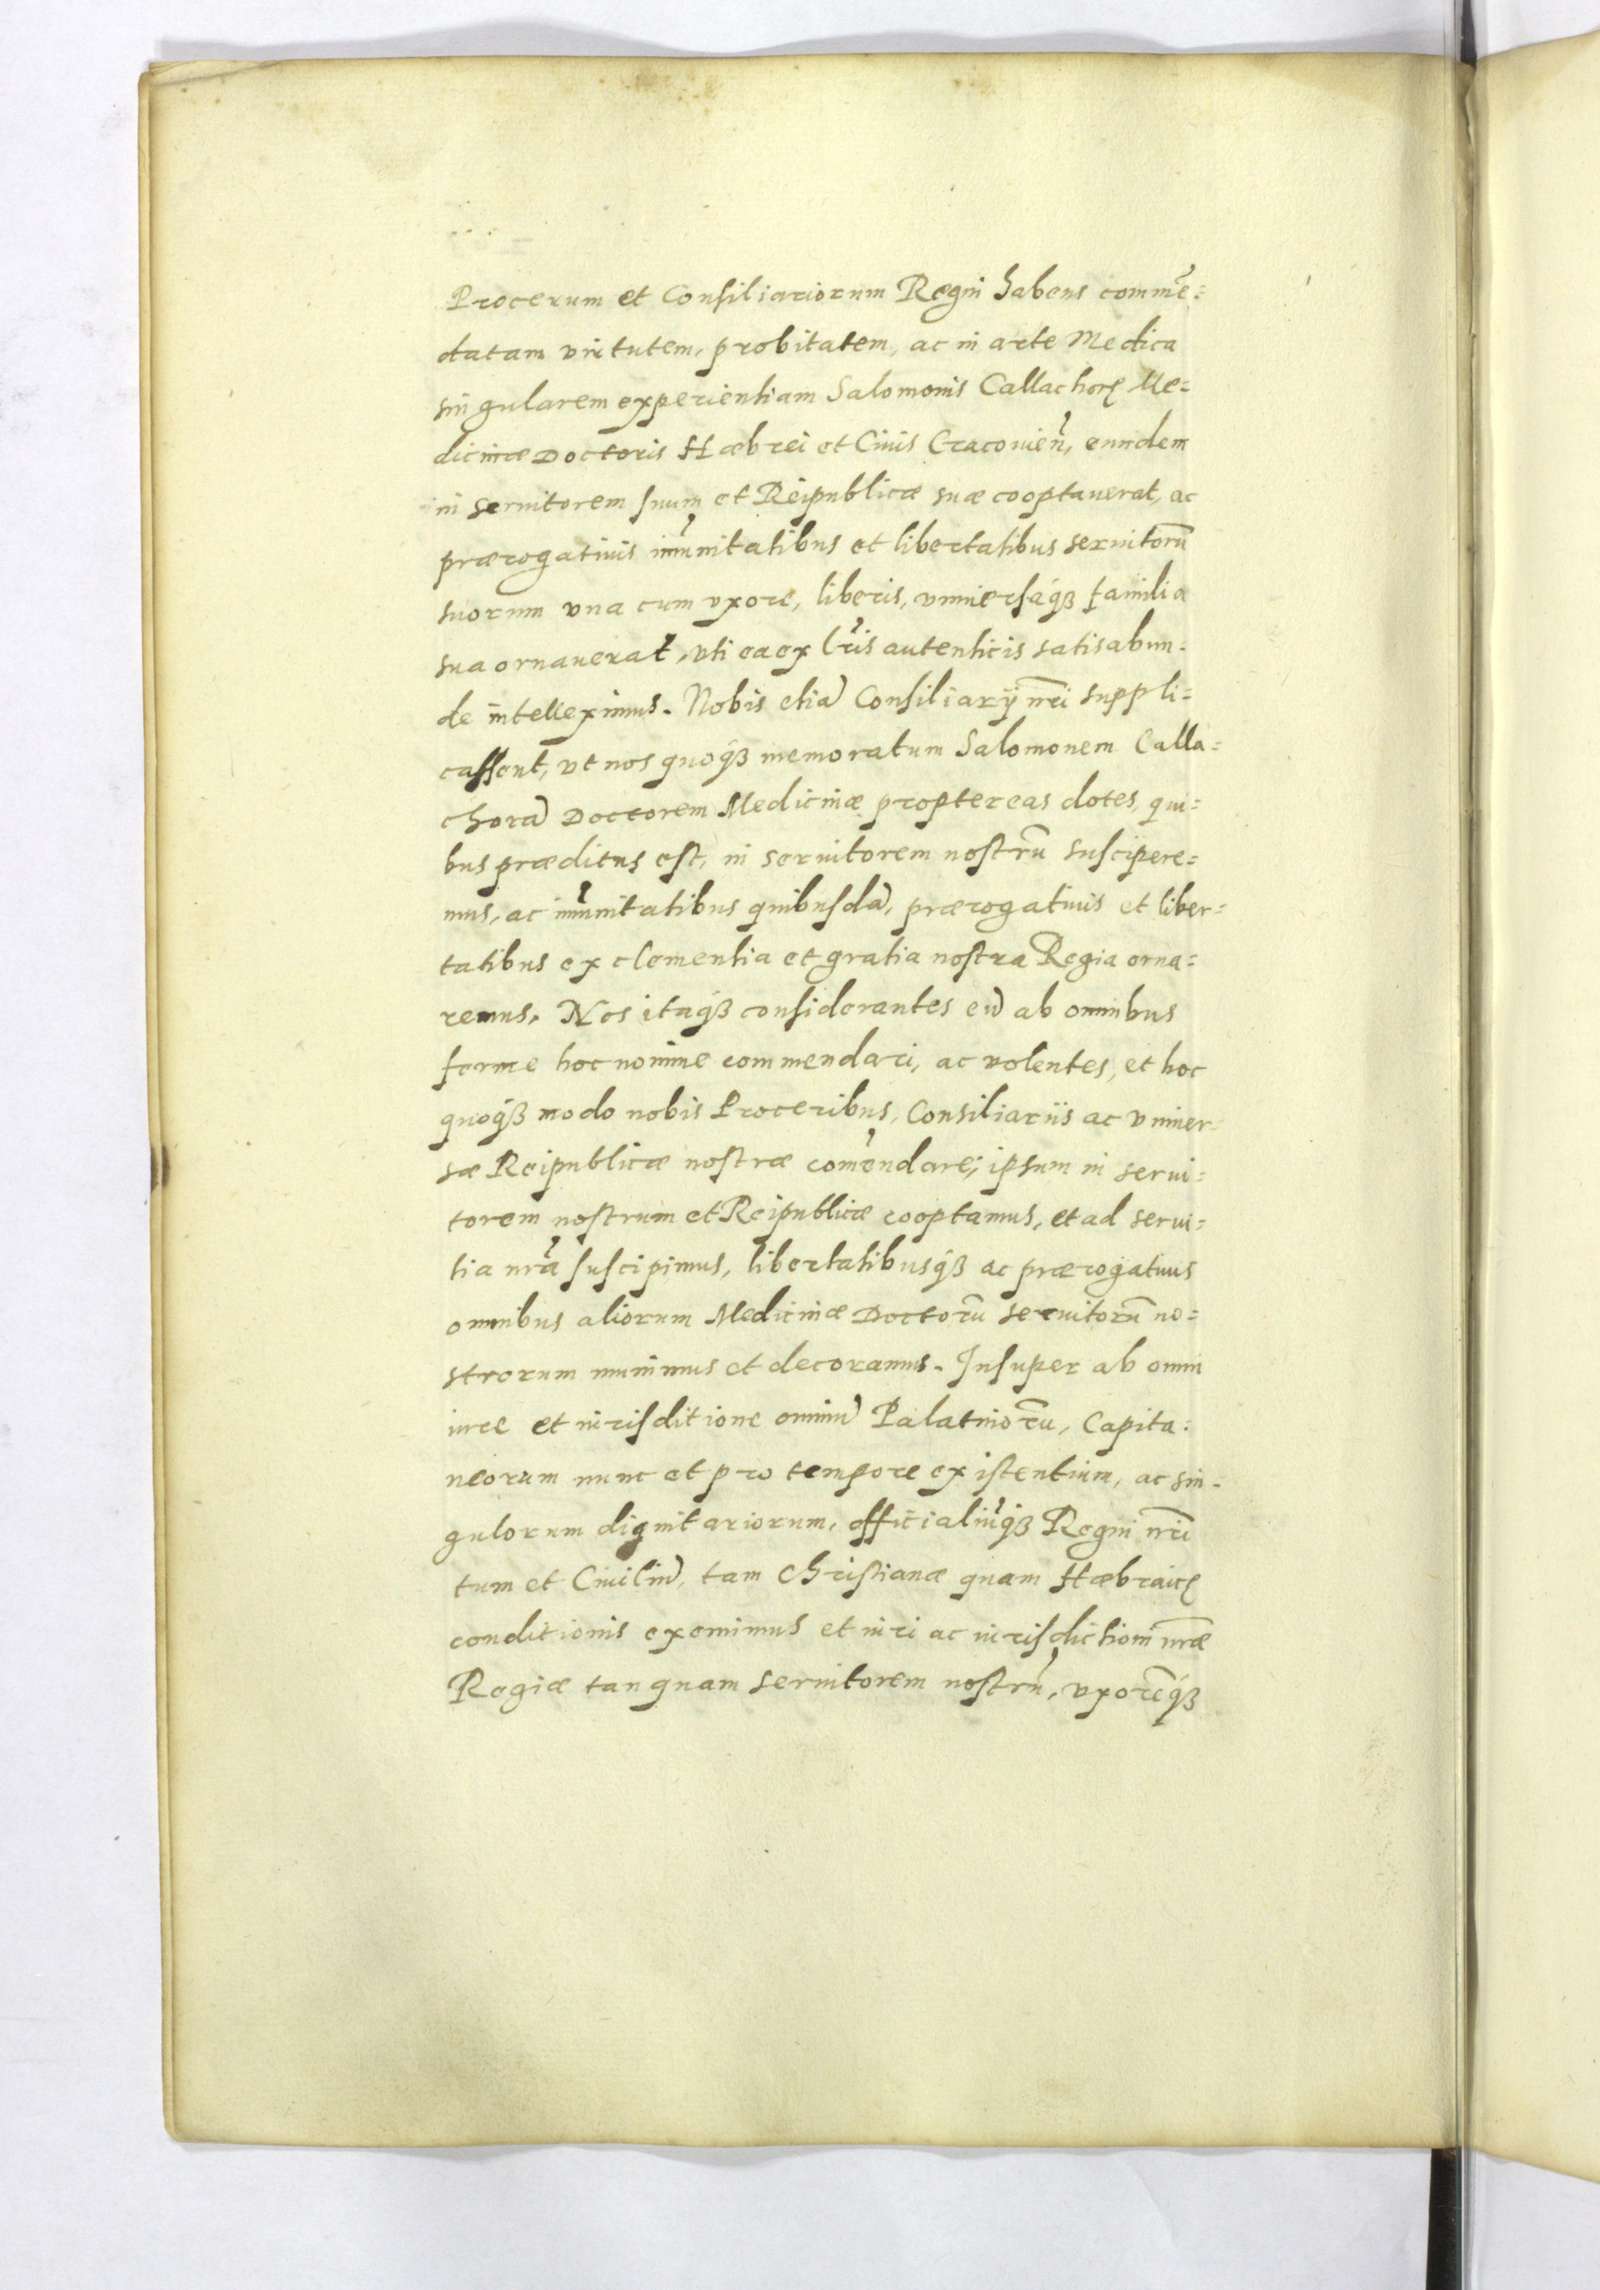 Procerum et Consiliariorum Regni habens commē=
datam virtutem, probitatem, ac in arte Medica
singularem experientiam Salomonis Callachorę Me=
dicinæ Doctoris Hæbrei et Ciuis Cracovien̄, eundem
in seruitorem suum et Reipublicæ suæ cooptauerat, ac
prærogatiuis im̄unitatibus et libertatibus seruitorū
suorum vna cum vxore, liberis, vniuersaq́ꝫ familia
sua ornauerat, vti ea ex lr̄is autenticis satis abun=
de intelleximus. Nobis etiā Consiliarij nr̄i suppli=
cassent, vt nos quoq́ꝫ memoratum Salomonem Calla=
chorā Doctorem Medicinæ propter eas dotes, qui=
bus præditus est, in seruitorem nostrū suscipere=
mus, ac im̄unitatibus quibusdā, prærogatiuis et liber=
tatibus ex clementia et gratia nostra Regia orna=
remus. Nos itaq́ꝫ considerantes eū ab omnibus
ferme hoc nomine commendari, ac volentes, et hoc
quoq́ꝫ modo nobis Proceribus, Consiliariis ac vniuer=
sæ Reipublicæ nostræ com̄endare; ipsum in serui=
torem nostrum et Reipublicæ cooptamus, et ad serui=
tia nr̄a suscipimus, libertatibusq́ꝫ ac prærogatiuis
omnibus aliorum Medicinæ Doctorū seruitorū no=
strorum munimus et decoramus. Insuper ab omni
iure et iurisditione omniū Palatinorū, Capita=
neorum nunc et pro tempore existentium, ac sin=
gulorum dignitariorum, officialiūq́ꝫ Regni nr̄i
tum et Ciuiliū, tam Christianæ quam Hæbraicę
conditionis eximimus et iuri ac iurisdictioni nr̄æ
Regiæ tanquam seruitorem nostrū, vxorēq́ꝫ